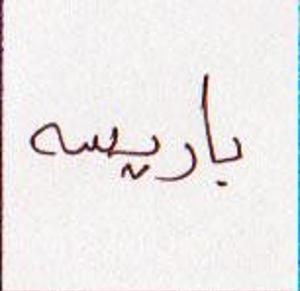 باریسه